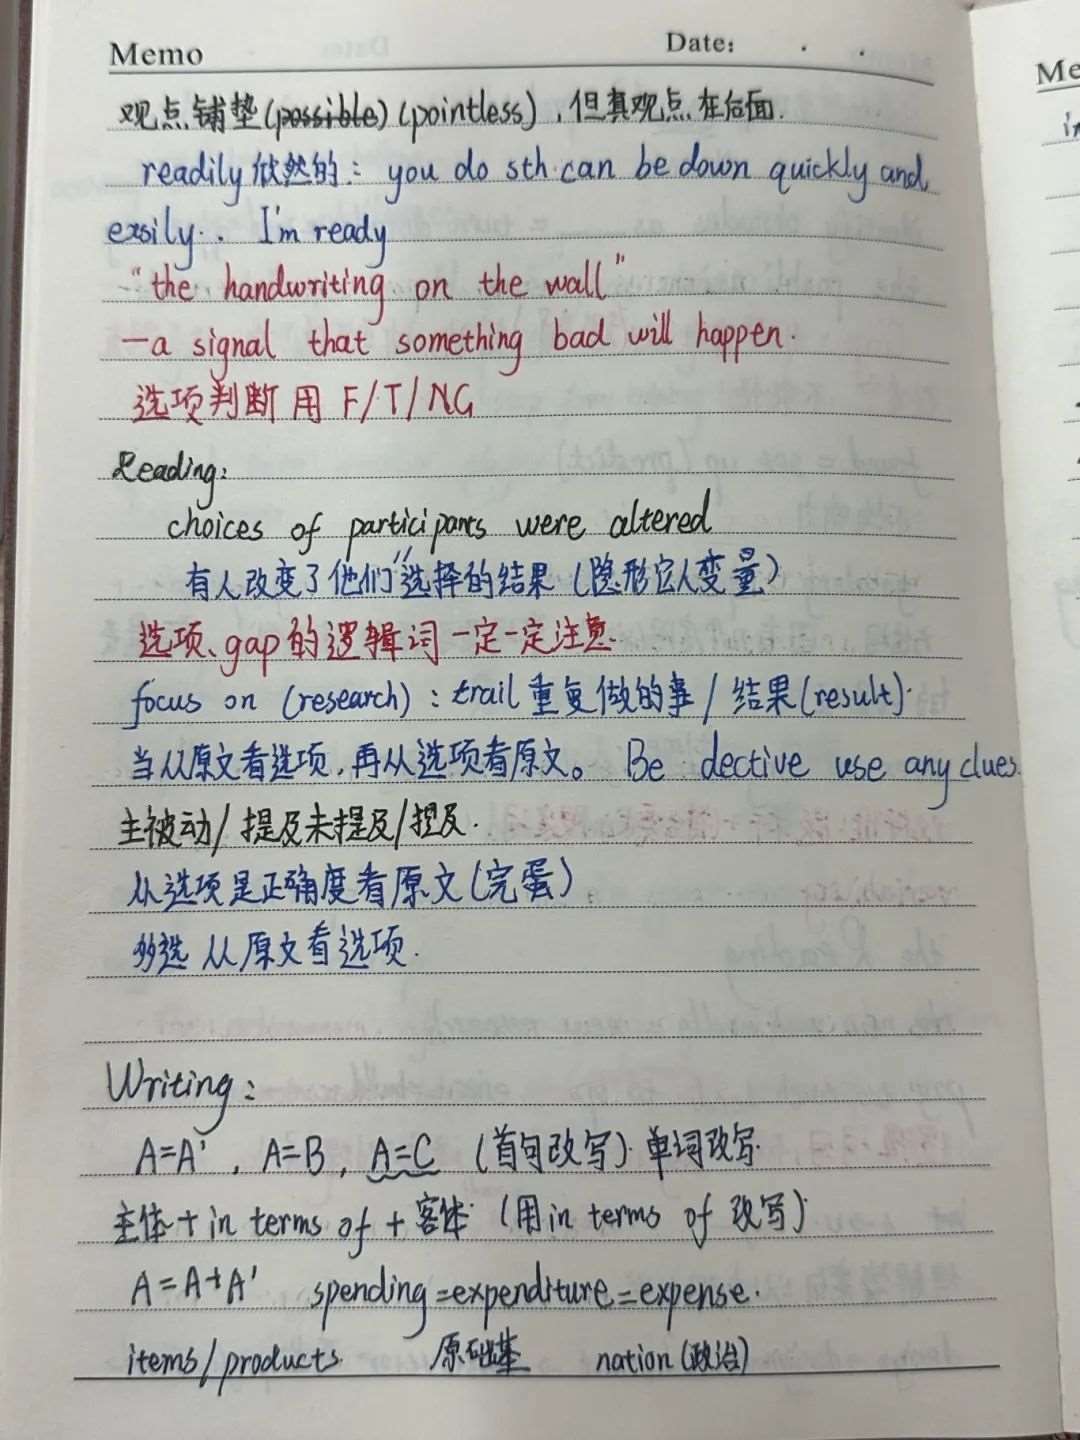 Memo Date: . .
观点铺垫(possible)(pointless),但真观点在后面.
readily 欣然的: you do sth can be down quickly and
exsily.. I'm ready
"the handwriting on the wall"
—a signal that something bad will happen.
选项判断用 F/T/NG
Reading:
choices of participants were altered
有人改变了他们"选择的结果(隐形它人变量)
选项、gap的逻辑词一定一定注意.
focus on (research): trail 重复做的事/结果(result).
当从原文看选项,再从选项看原文。 Be dective use any clues.
主被动/提及未提及/提及.
从选项是正确度看原文(完蛋)
多选 从原文看选项.
Writing:
A=A', A=B, A=C (首句改写). 单词改写.
主体+in terms of+客体. (用in terms of 改写).
A=A+A' spending=expenditure=expense.
items/products. nation(政治)
Me